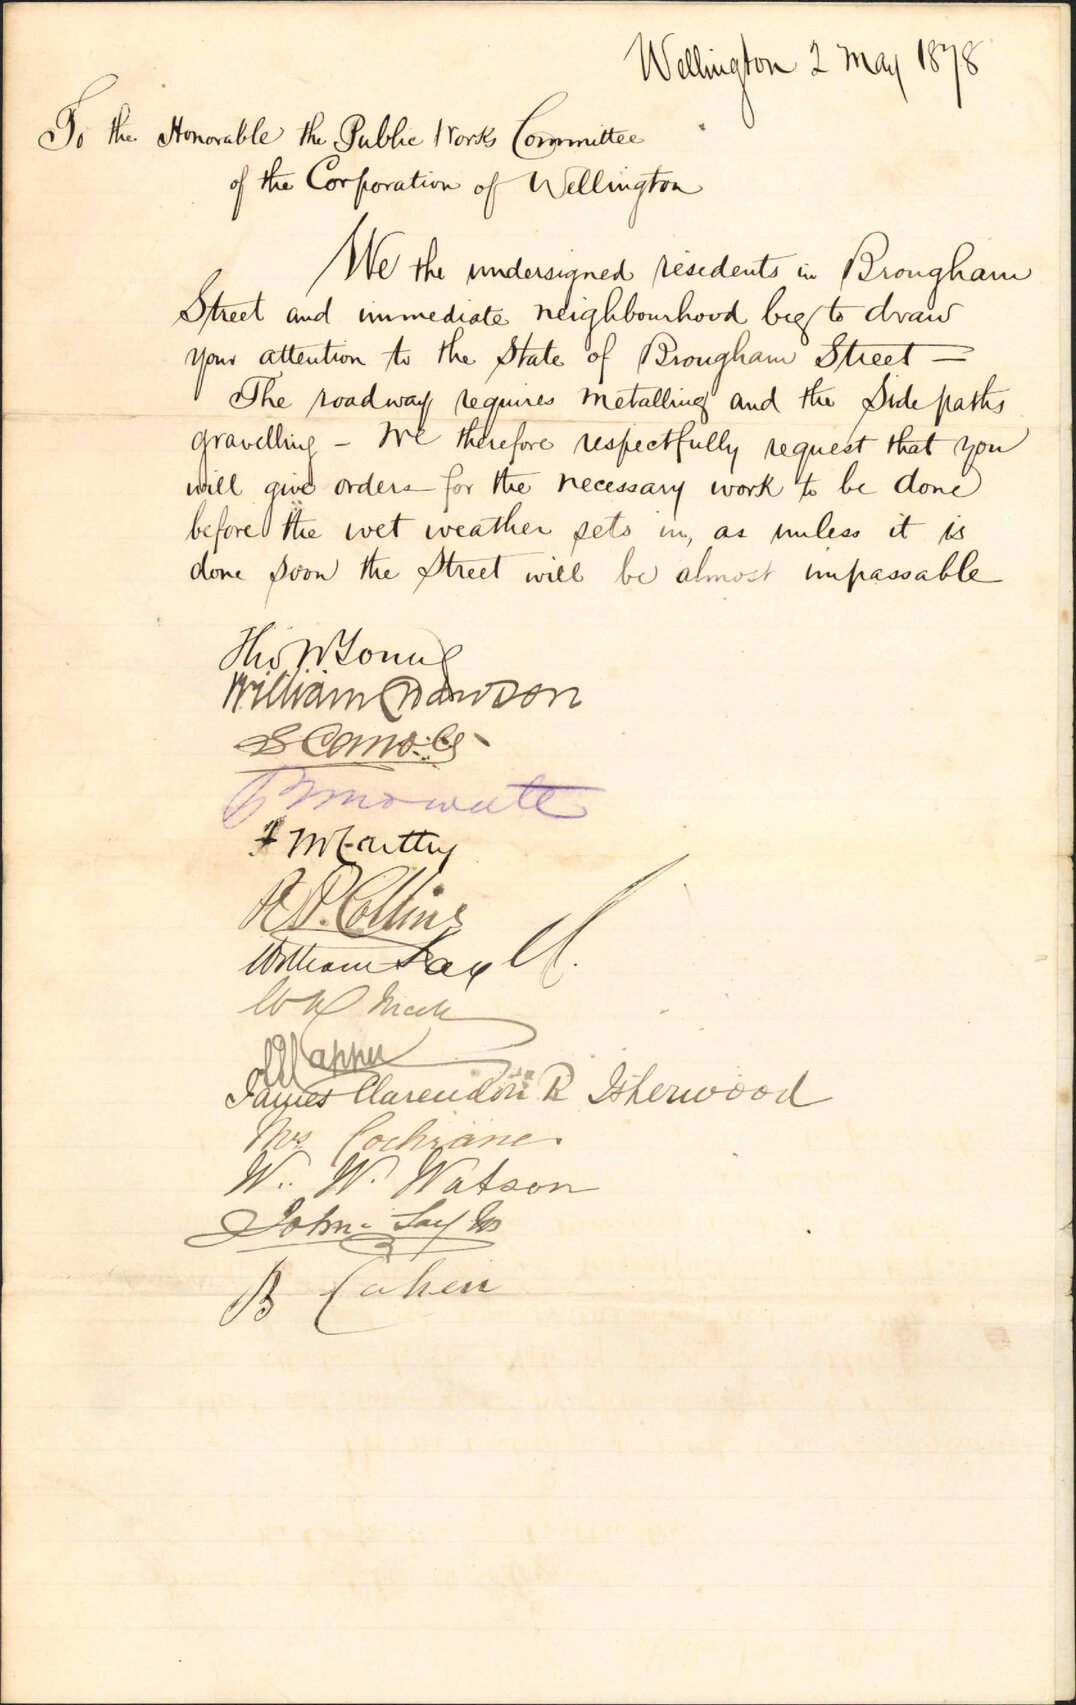 Wellington 2 May 1878
To the Honorable the Public Works Committee
of the Corporation of Wellington
We the undersigned residents in Brougham
Street and immediate neighbourhood beg to draw
your attention to the State of Brougham Street —
The roadway requires metalling and the Side paths
gravelling – We therefore respectfully request that you
will give orders for the necessary work to be done
before the wet weather sets in, as unless it is
done soon the Street will be almost impassable
Thos W Young
William Dawson
McCarthy
Collins
William
W
James Clarendon R Isherwood
Mrs Cochrane
W. W. Watson
John
B Cohen